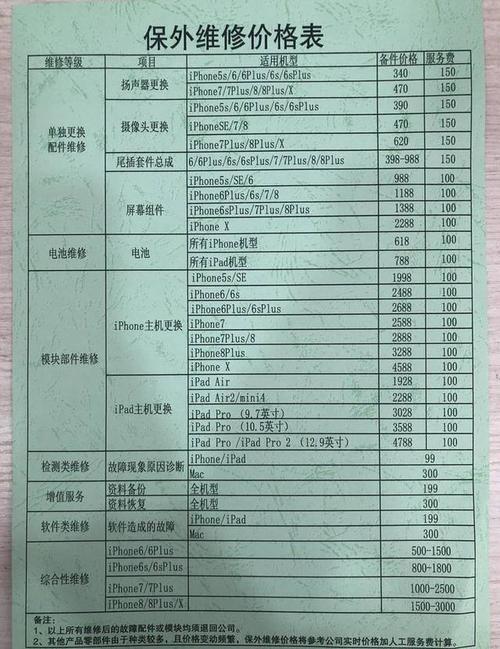 保外维修价格表
维修等级 项目 适用机型 备件价格 服务费
单独更换配件维修 扬声器更换 iPhone5s/6/6Plus/6s/6sPlus 340 150
iPhone7/7Plus/8/8Plus/X 470 150
摄像头更换 iPhone5s/6/6Plus/6s/6sPlus 390 150
iPhoneSE/7/8 470 150
iPhone7Plus/8Plus/X 620 150
尾插套件总成 6/6Plus/6s/6sPlus/7/7Plus/8/8Plus 398-988 150
屏幕组件 iPhone5s/SE/6 988 100
iPhone6Plus/6s/7/8 1188 100
iPhone6sPlus/7Plus/8Plus 1388 100
iPhone X 2288 100
电池维修 电池 所有iPhone机型 618 100
所有iPad机型 788 100
模块部件维修 iPhone主机更换 iPhone5s/SE 1998 100
iPhone6/6s 2488 100
iPhone6Plus/6sPlus 2688 100
iPhone7 2588 100
iPhone7Plus/8 2888 100
iPhone8Plus 3288 100
iPhone X 4588 100
iPad主机更换 iPad Air 1928 100
iPad Air2/mini4 2288 100
iPad Pro (9.7英寸) 3028 100
iPad Pro (10.5英寸) 3588 100
iPad Pro /iPad Pro 2 (12.9英寸) 4788 100
检测类维修 故障现象原因诊断 iPhone/iPad 99
Mac 300
增值服务 资料备份 全机型 199
资料恢复 全机型 300
软件类维修 软件造成的故障 iPhone/iPad 199
Mac 300
综合性维修 iPhone6/6Plus 500-1500
iPhone6s/6sPlus 800-1800
iPhone7/7Plus 1000-2500
iPhone8/8Plus/X 1500-3000
备注：
1、以上所有维修后的故障配件或模块均须退回公司。
2、其他产品零部件由于种类较多，且价格变动频繁，保外维修价格将参考公司实时价格加人工服务费计算。